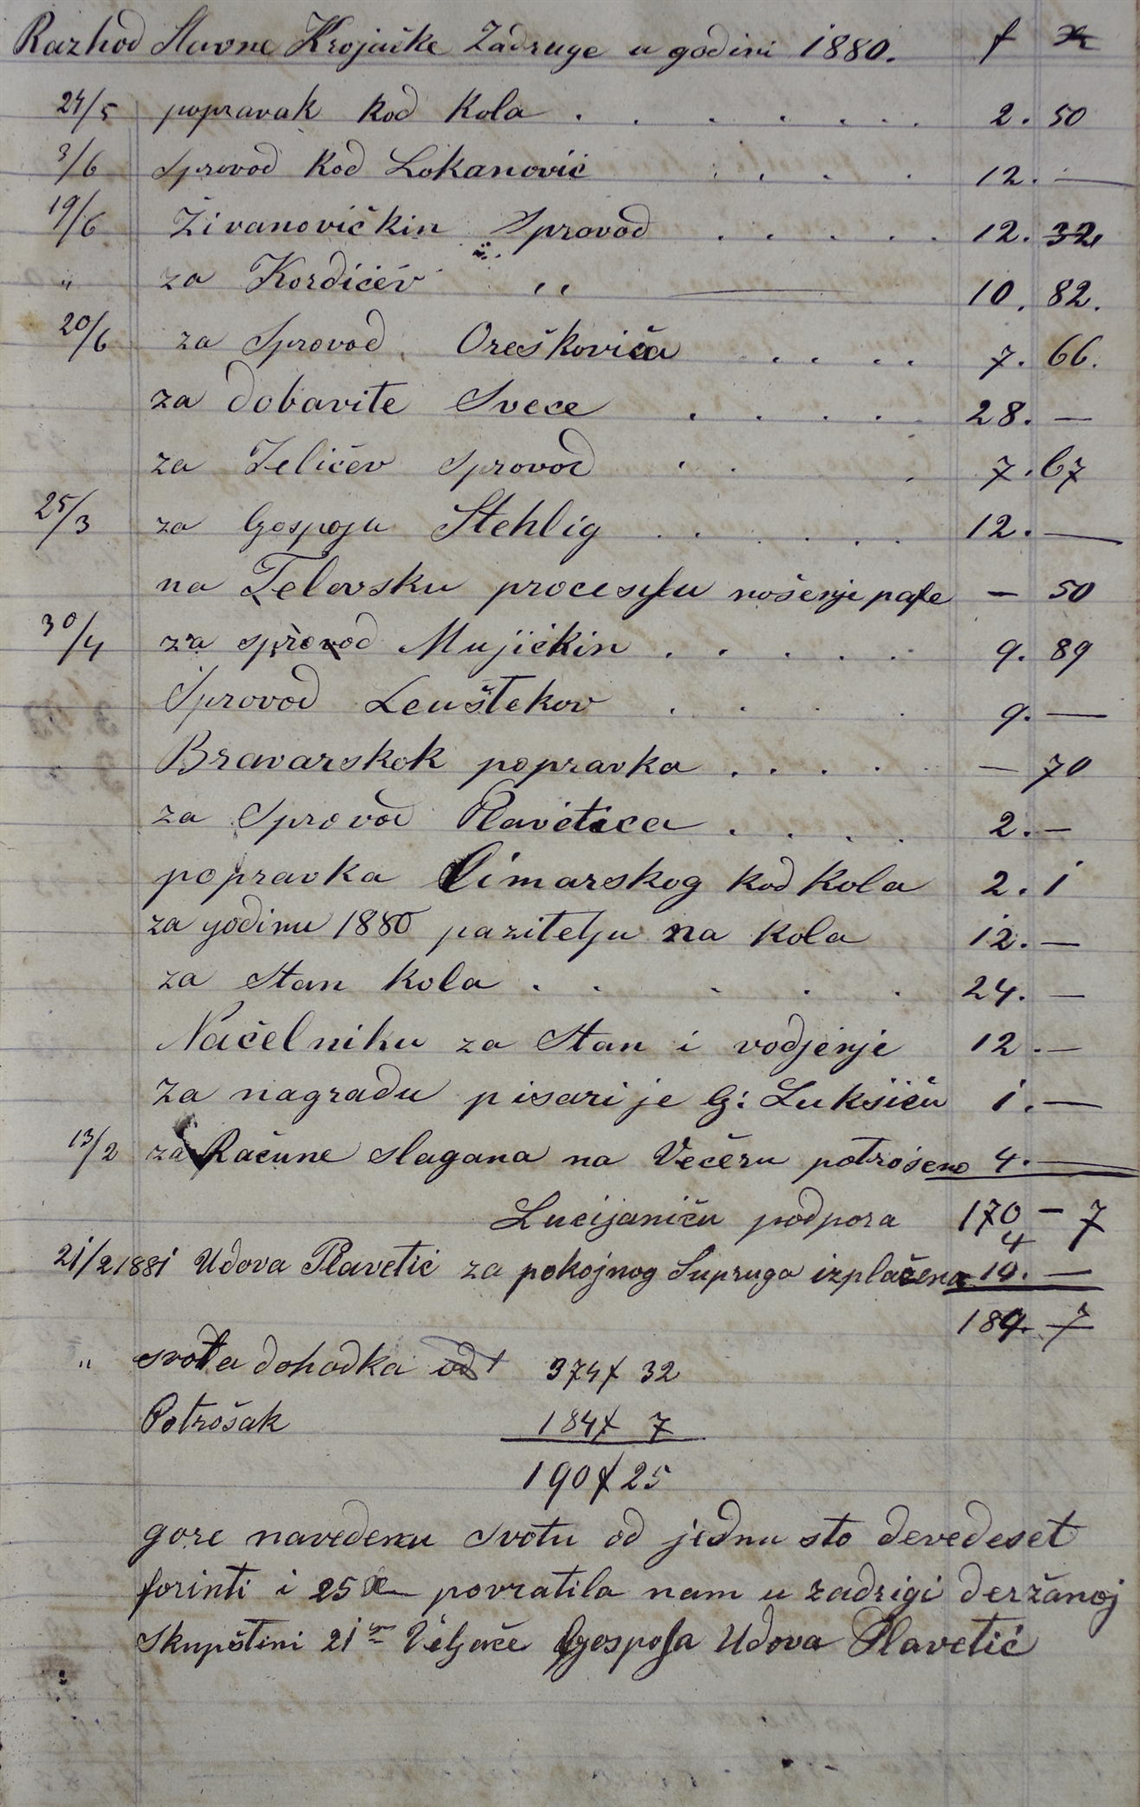 Razhod Slavne Krojačke Zadruge u godini 1880. f x
24/5 popravak kod Kola . . . . . . . 2. 50
3/6 Sprovod kod Lokanović . . . . 12. —
19/6 Živanovičkin Sprovod . . . . . 12. 32
" za Kordićev " — 10. 82.
20/6 za Sprovod Oreškoviča . . . . 7. 66.
za dobavite Svece . . . . 28. —
za Jeličev Sprovod . . . 7. 67
25/3 za Gospoju Stehlig . . . . . 12. —
na Telovsku procesiju nošenje pape — 50
30/4 za sprovod Mujičkin . . . . . 9. 89
Sprovod Leuštekov . . . . 9. —
Bravarskok popravka . . . . — 70
za Sprovod Plavetića . . . . 2. —
popravka Limarskog kod Kola 2. 1
za godinu 1880 pazitelju na kola 12. —
za Stan kola . . . . . 24. —
Načelniku za Stan i vodjenje 12. —
za nagradu pisarije G: Luksiću 1. —
13/2 za Račune slagana na Večeru potrošeno 4. —
Lucijaniću podpora 170 — 7
4
21/2 1881 Udova Plavetić za pokojnog Supruga izplačena 10. —
184. 7
" svota dohodka 374f 32
Potrošak 184f 7
190f 25
gore navedenu svotu od jednu sto devedeset
forinti i 25 x povratila nam u zadrigi deržanoj
Skupštini 21 Veljače Gospoja Udova Plavetić